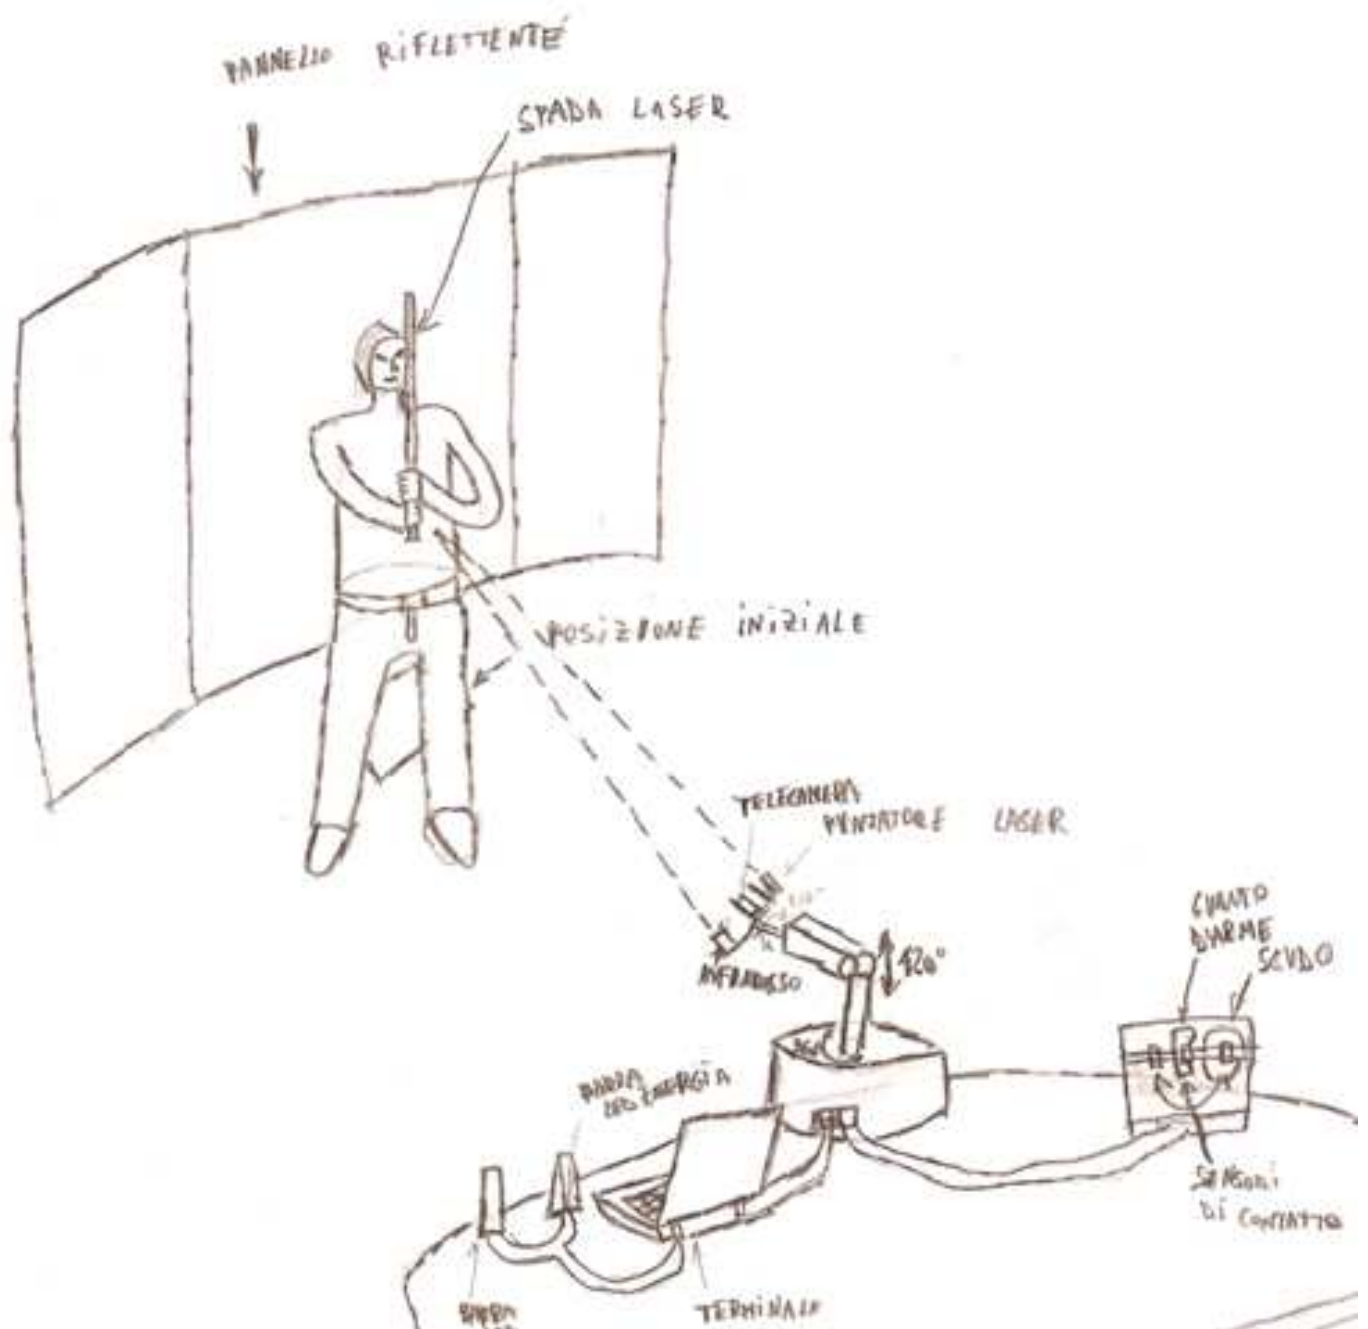 PANNELLO RIFLETTENTE
SPADA LASER
POSIZIONE INIZIALE
TELECAMERA
PUNTATORE LASER
INFRAROSSO
120°
GUANTO
D'ARME
SCUDO
BARRA
LED ENERGIA
SENSORI
DI CONTATTO
BARRA
TERMINALE